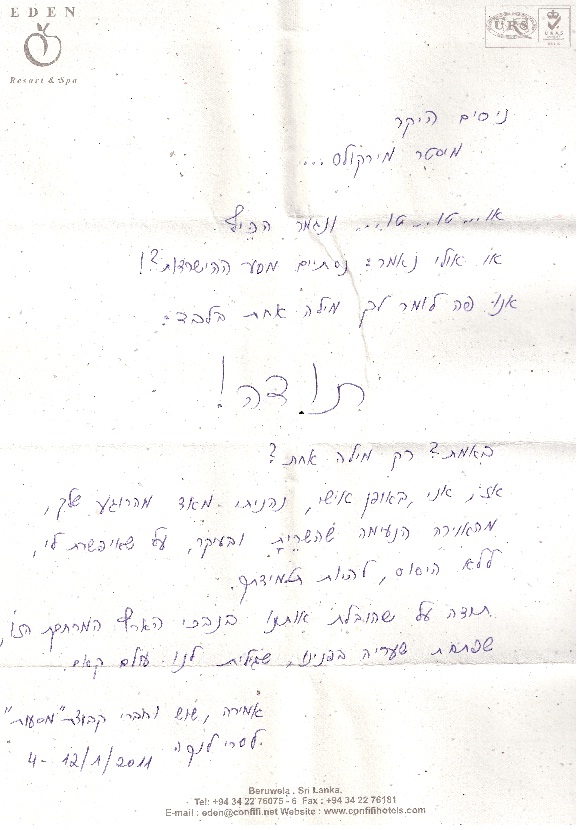 EDEN
Resort & Spa
URS
ניסים היקר
מיסטר מירקולס...
או... טו... טו... ונגמר הכיף.
או אולי נאמר: נסתיים מסע ההישרדות?!
אני פה לומר לך מילה אחת בלבד:
תודה!
באמת? רק מילה אחת?
אז, אני, באופן אישי, נהניתי מאד מהרוגע שלך,
מהאוירה הנעימה שהשרית ובעיקר, על שאיפשרת לי,
ללא היסוס, להיות תלמידתך.
תודה על שהובלת אותנו בנבכי הארץ המרתקת הזו,
שפתחת שעריה בפנינו, שגילית לנו עולם קאים.
אמירה, שוש וחברי קבוצת "מסעות"
לסרי לנקה
4-12/1/2011
Beruwela . Sri Lanka.
Tel: +94 34 22 76075 - 6 Fax : +94 34 22 76181
E-mail : eden@confifi.net Website : www.confifihotels.com